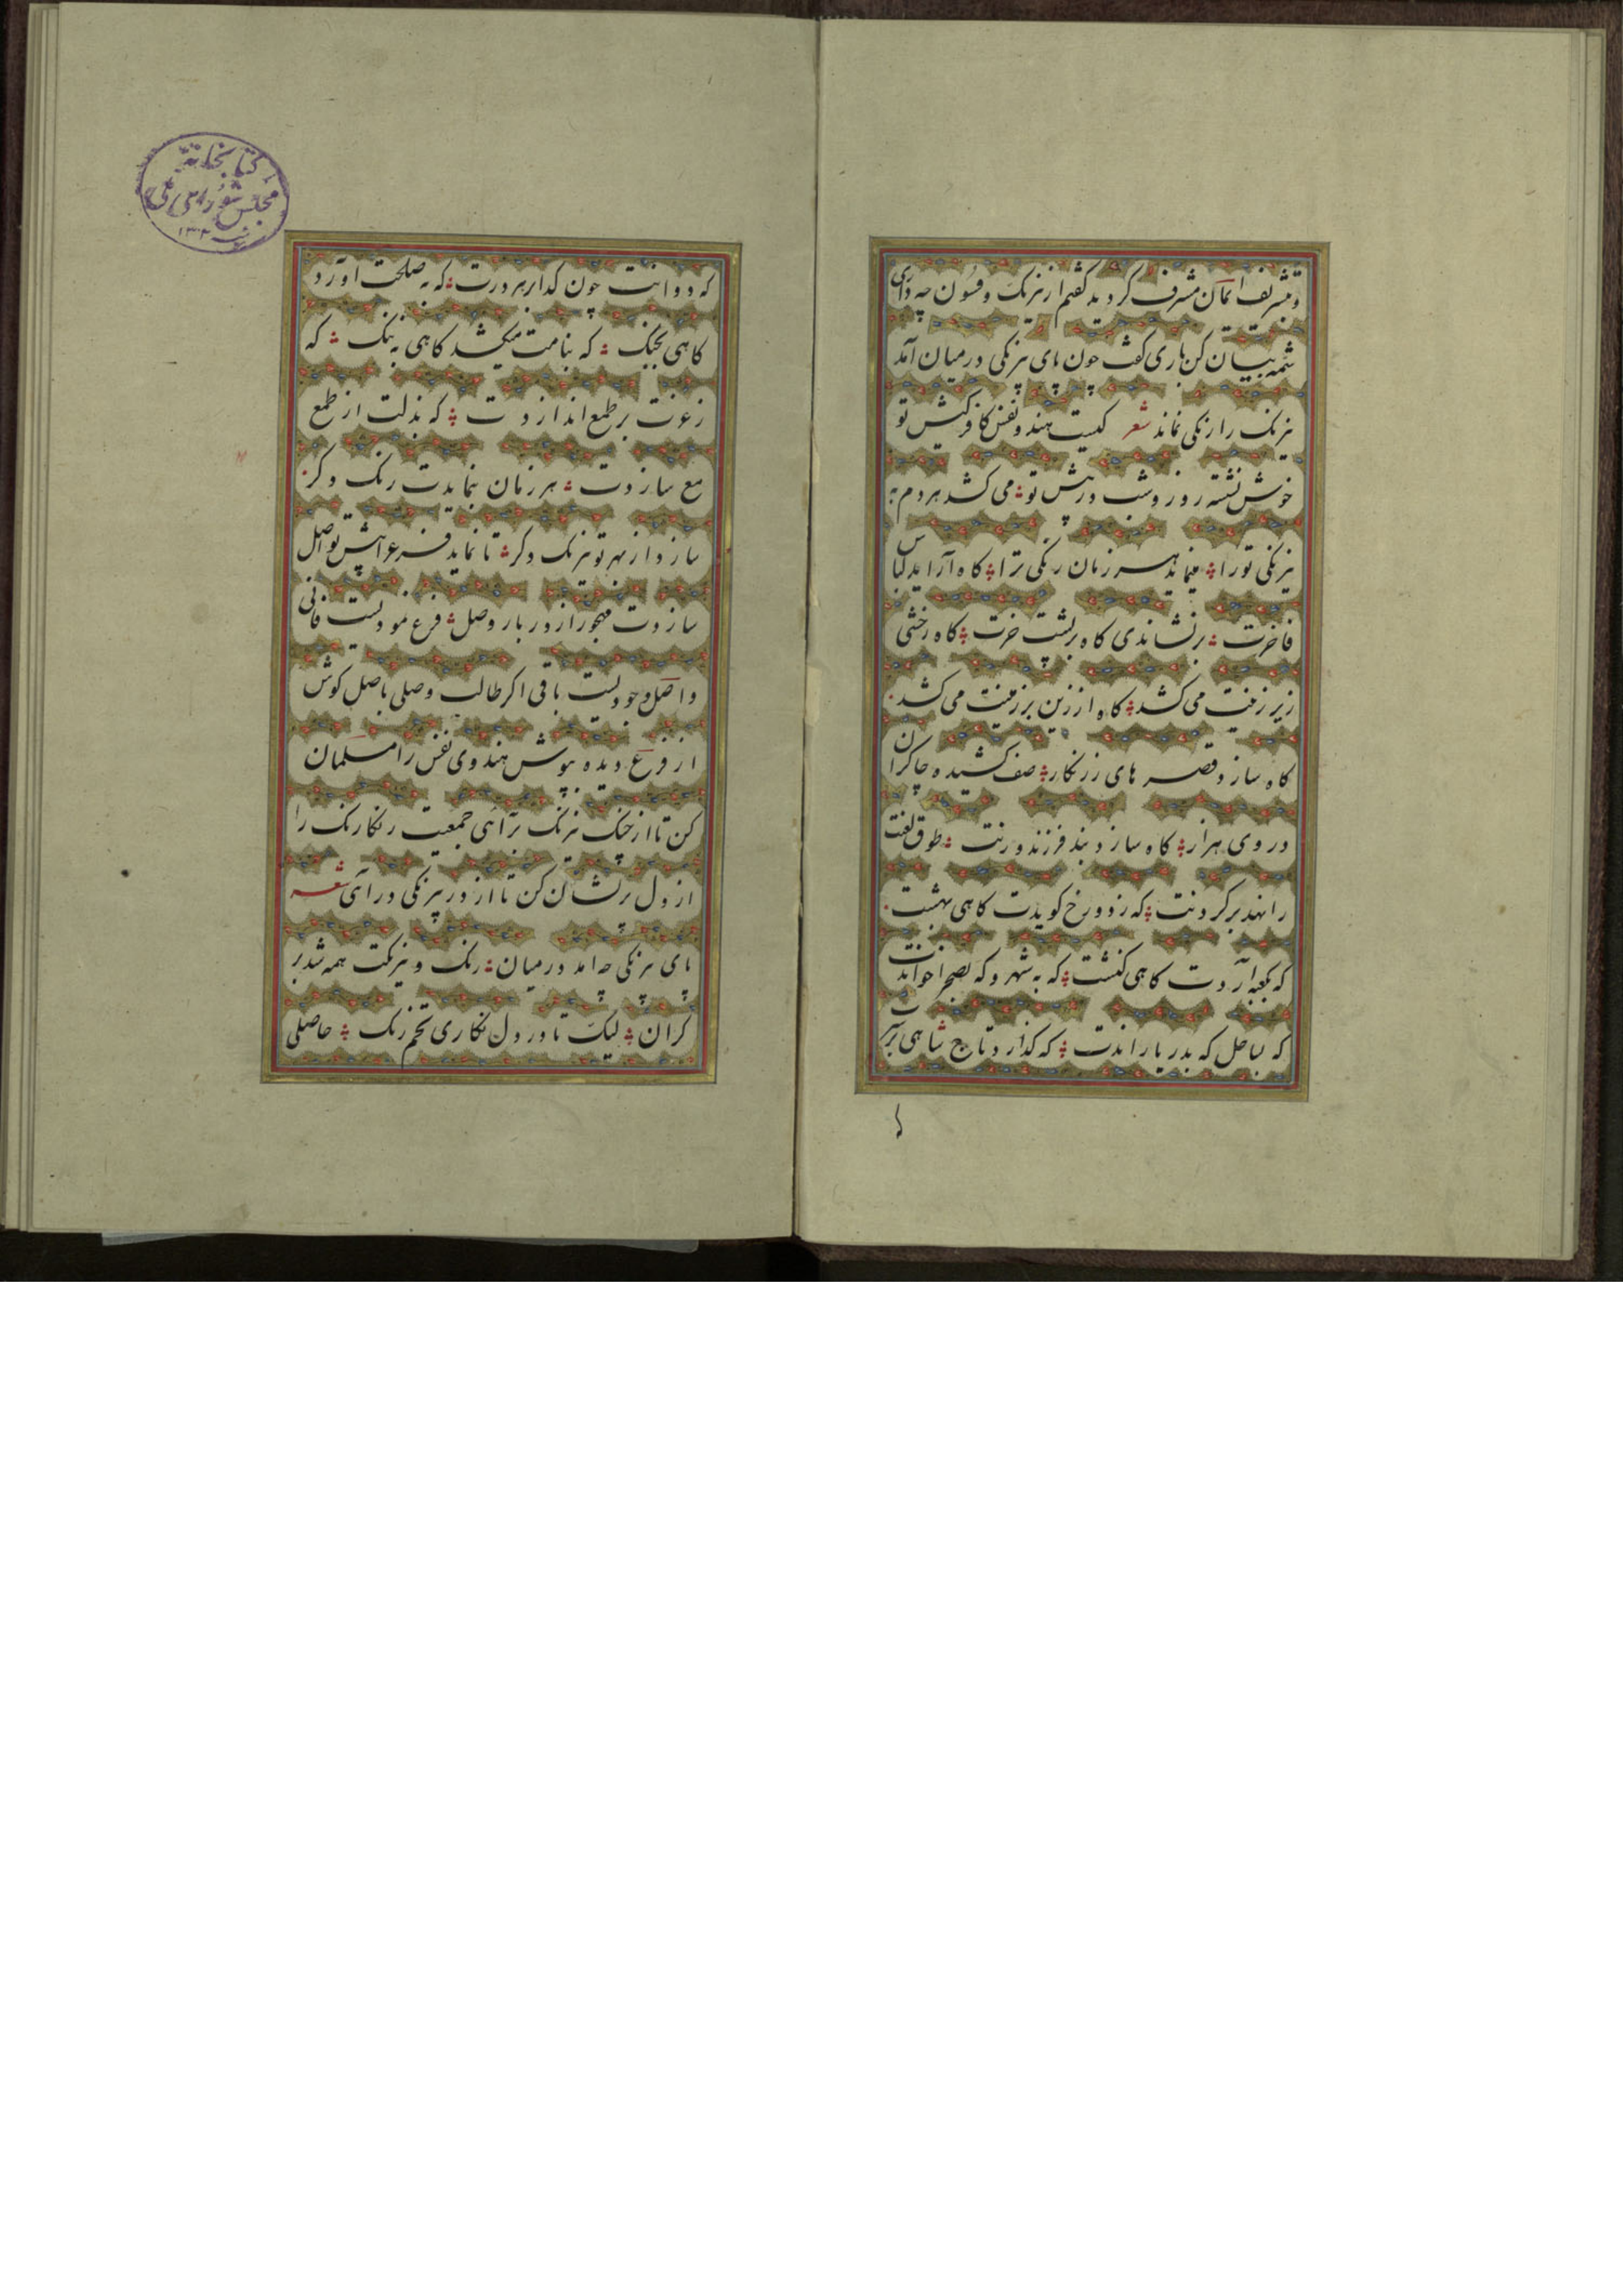 و بتشریف ایمان مشرف کردید کفتم از نیرنک و فسون چه داری
شمه بیان کن باری کفت چون پای بیرنکی در میان آمد
نیرنک را رنکی نماند شعر کیست هندو نفس کافر کیش تو
خوش نشسته روز و شب در پیش تو می کشد هر دم به
نیرنکی تو را مینماید هر زمان رنکی ترا کاه آراید لباس
فاخرت برنشاندی کاه بر پشت خرت کاه رختی
زیر زینت می کشد کاه از زین بر زمینت می کشد
کاه سازد قصر های زرنکار صف کشیده چاکران
در وی هزار کاه سازد بند فرزند و زنت طوق لعنت
را نهد بر کردنت که ز دوزخ کویدت کاهی بهشت
که بکعبه آردت کاهی کنشت که به شهر و که بصحرا خواندت
که بساحل که بدریا راندت که کذارد تاج شاهی بر سرت
که دواند چون کدا بر هر درت که به صلحت آورد
کاهی بجنک که بنامت میکشد کاهی به ننک که
ز عزت بر طمع اندازدت که بذلت از طمع
مع سازدت هر زمان بنمایدت رنک دکر
سازد از بهر تو نیرنک دکر تا نماید فرع را پیش تو اصل
سازدت مهجور از دربار وصل فرع نمودیست فانی
و اصل وجودیست باقی اکر طالب وصلی باصل کوش
از فرع دیده بپوش هندوی نفس را مسلمان
کن تا از چنک نیرنک برآئی جمعیت رنکارنک را
از دل پریشان کن تا از در بیرنکی درآی شعر
پای بیرنکی چه آمد در میان رنک و نیرنکت همه شد بر
کران لیک تا در دل نکاری تخم رنک حاصلی
کتابخانه
مجلس شورای ملی